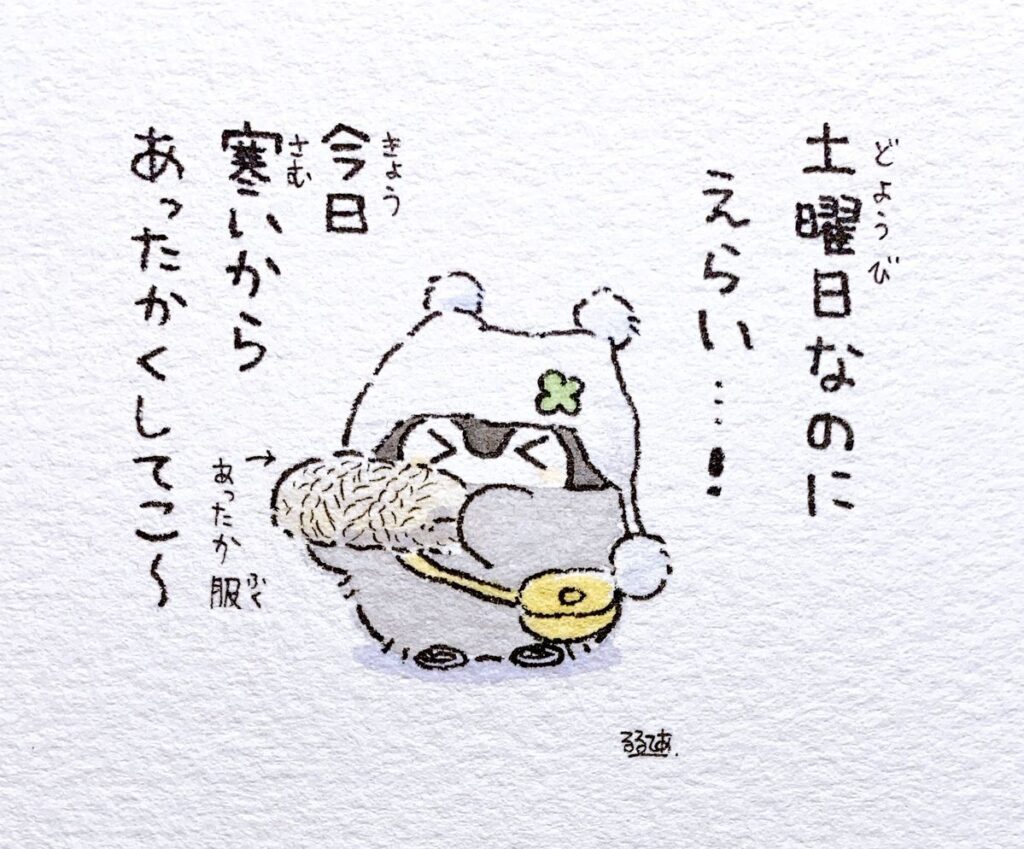 土曜日なのに
どようび
えらい…!
今日
きょう
寒いから
さむ
あったかくしてこ〜
→
あったか服
ふく
るるてあ.